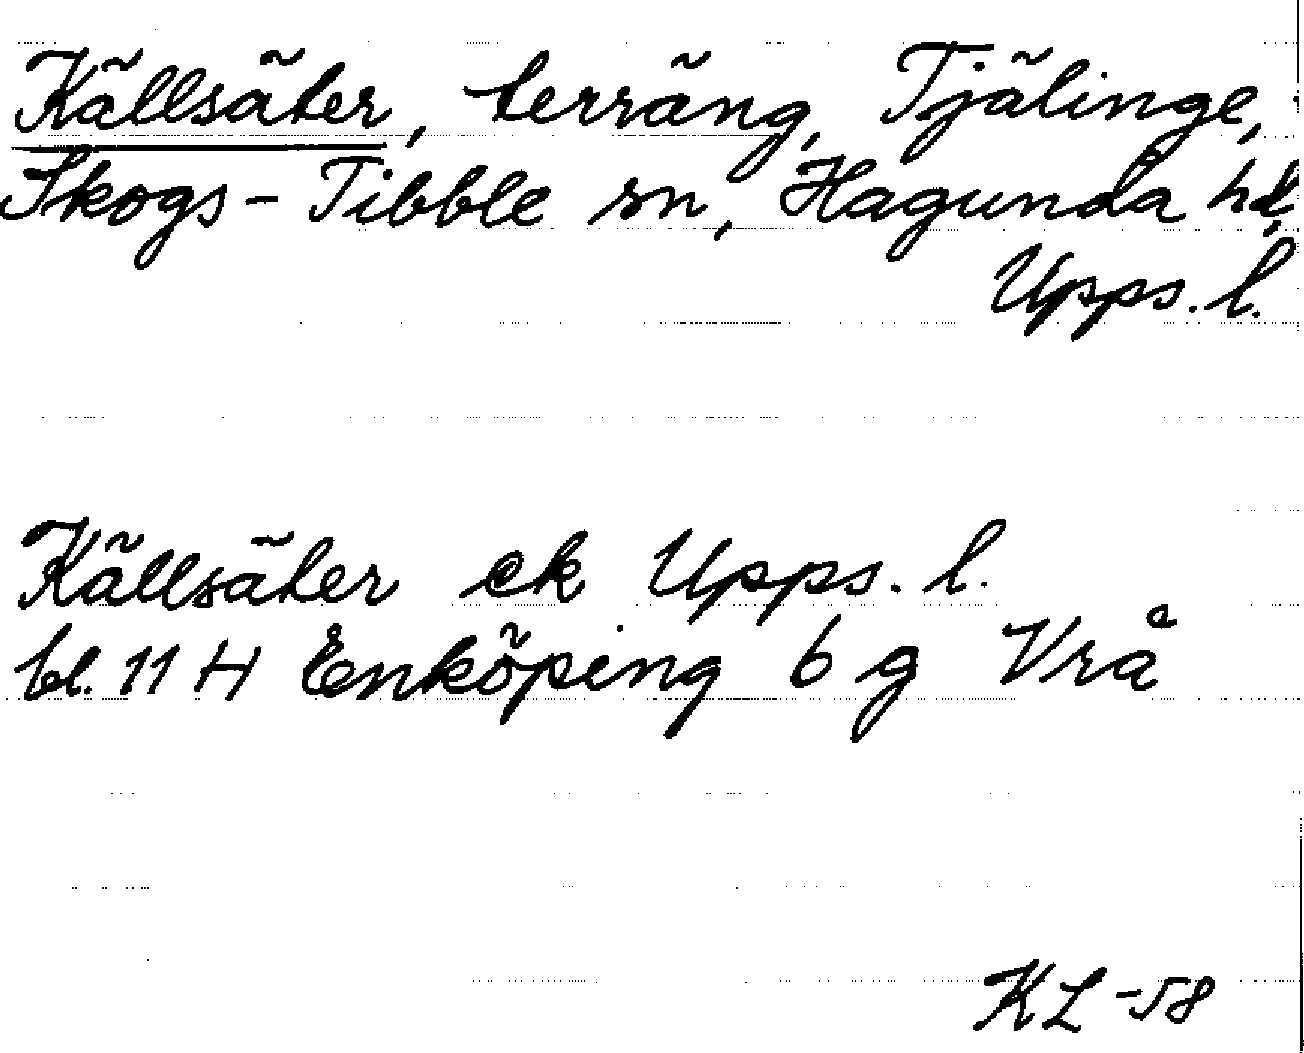 Källsäter, terräng, Tjälinge,
Skogs-Tibble sn, Hagunda hd,
Upps. l.
Källsäter ek Upps. l.
bl. 11 H Enköping 6 g Vrå
KL -58